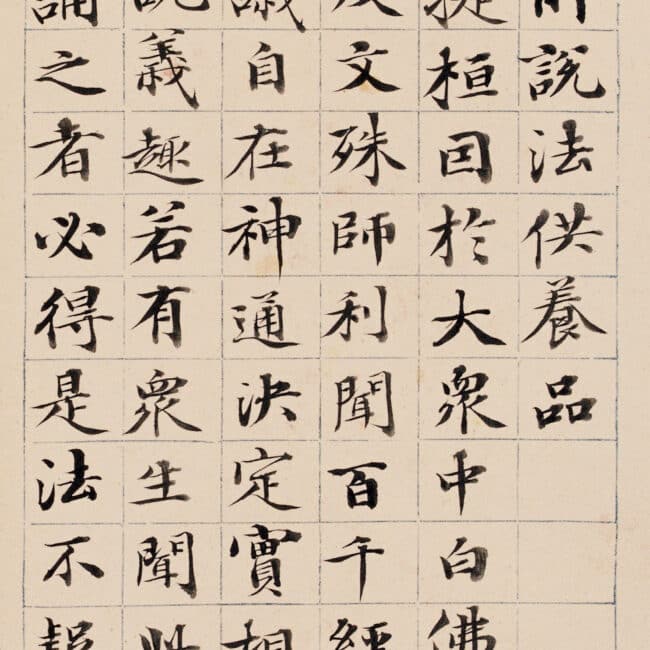 說法供養品
提桓囙於大衆中白佛
文殊師利聞百千經
議自在神通決定實相
說義趣若有衆生聞此
誦之者必得是法不